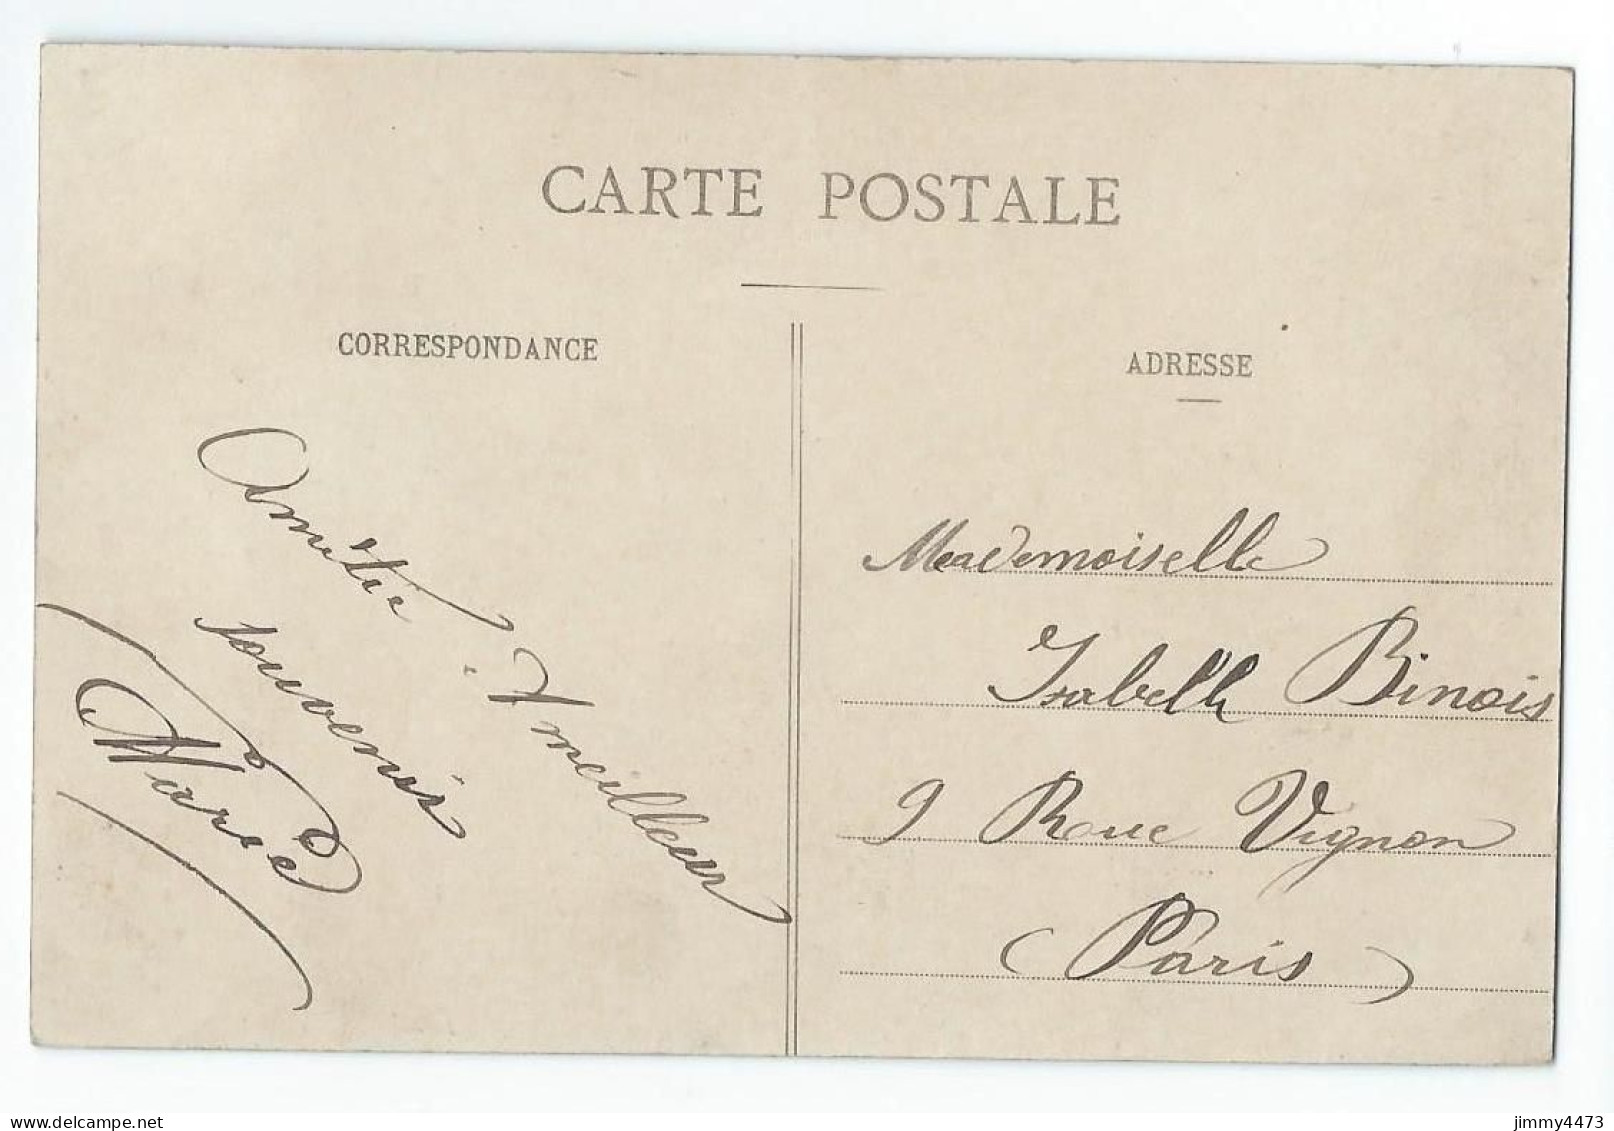 CARTE POSTALE
CORRESPONDANCE
Amitié & meilleur
souvenir
Marie
ADRESSE
Mademoiselle
Isabelle Binois
9 Rue Vignon
(Paris)
delcampe.net
jimmy4473